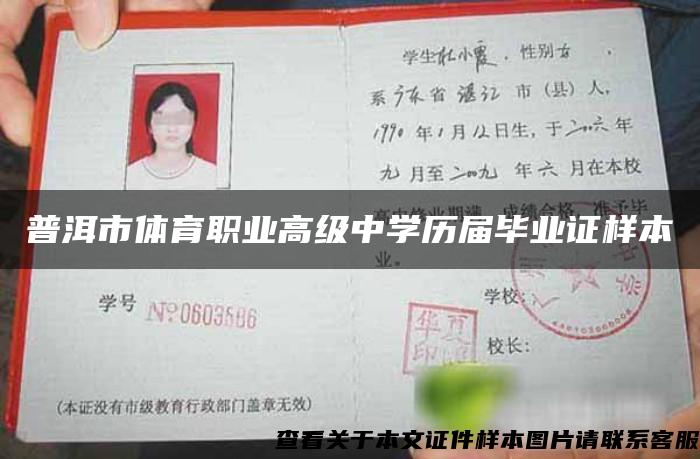 学生杜小霞，性别女，
系广东省湛江市（县）人，
1990年1月12日生，于二00六年
九月至二00九年六月在本校
普洱市体育职业高级中学历届毕业证样本
业。
学号 №0603586
学校：
华夏
印
校长：
（本证没有市级教育行政部门盖章无效）
查看关于本文证件样本图片请联系客服